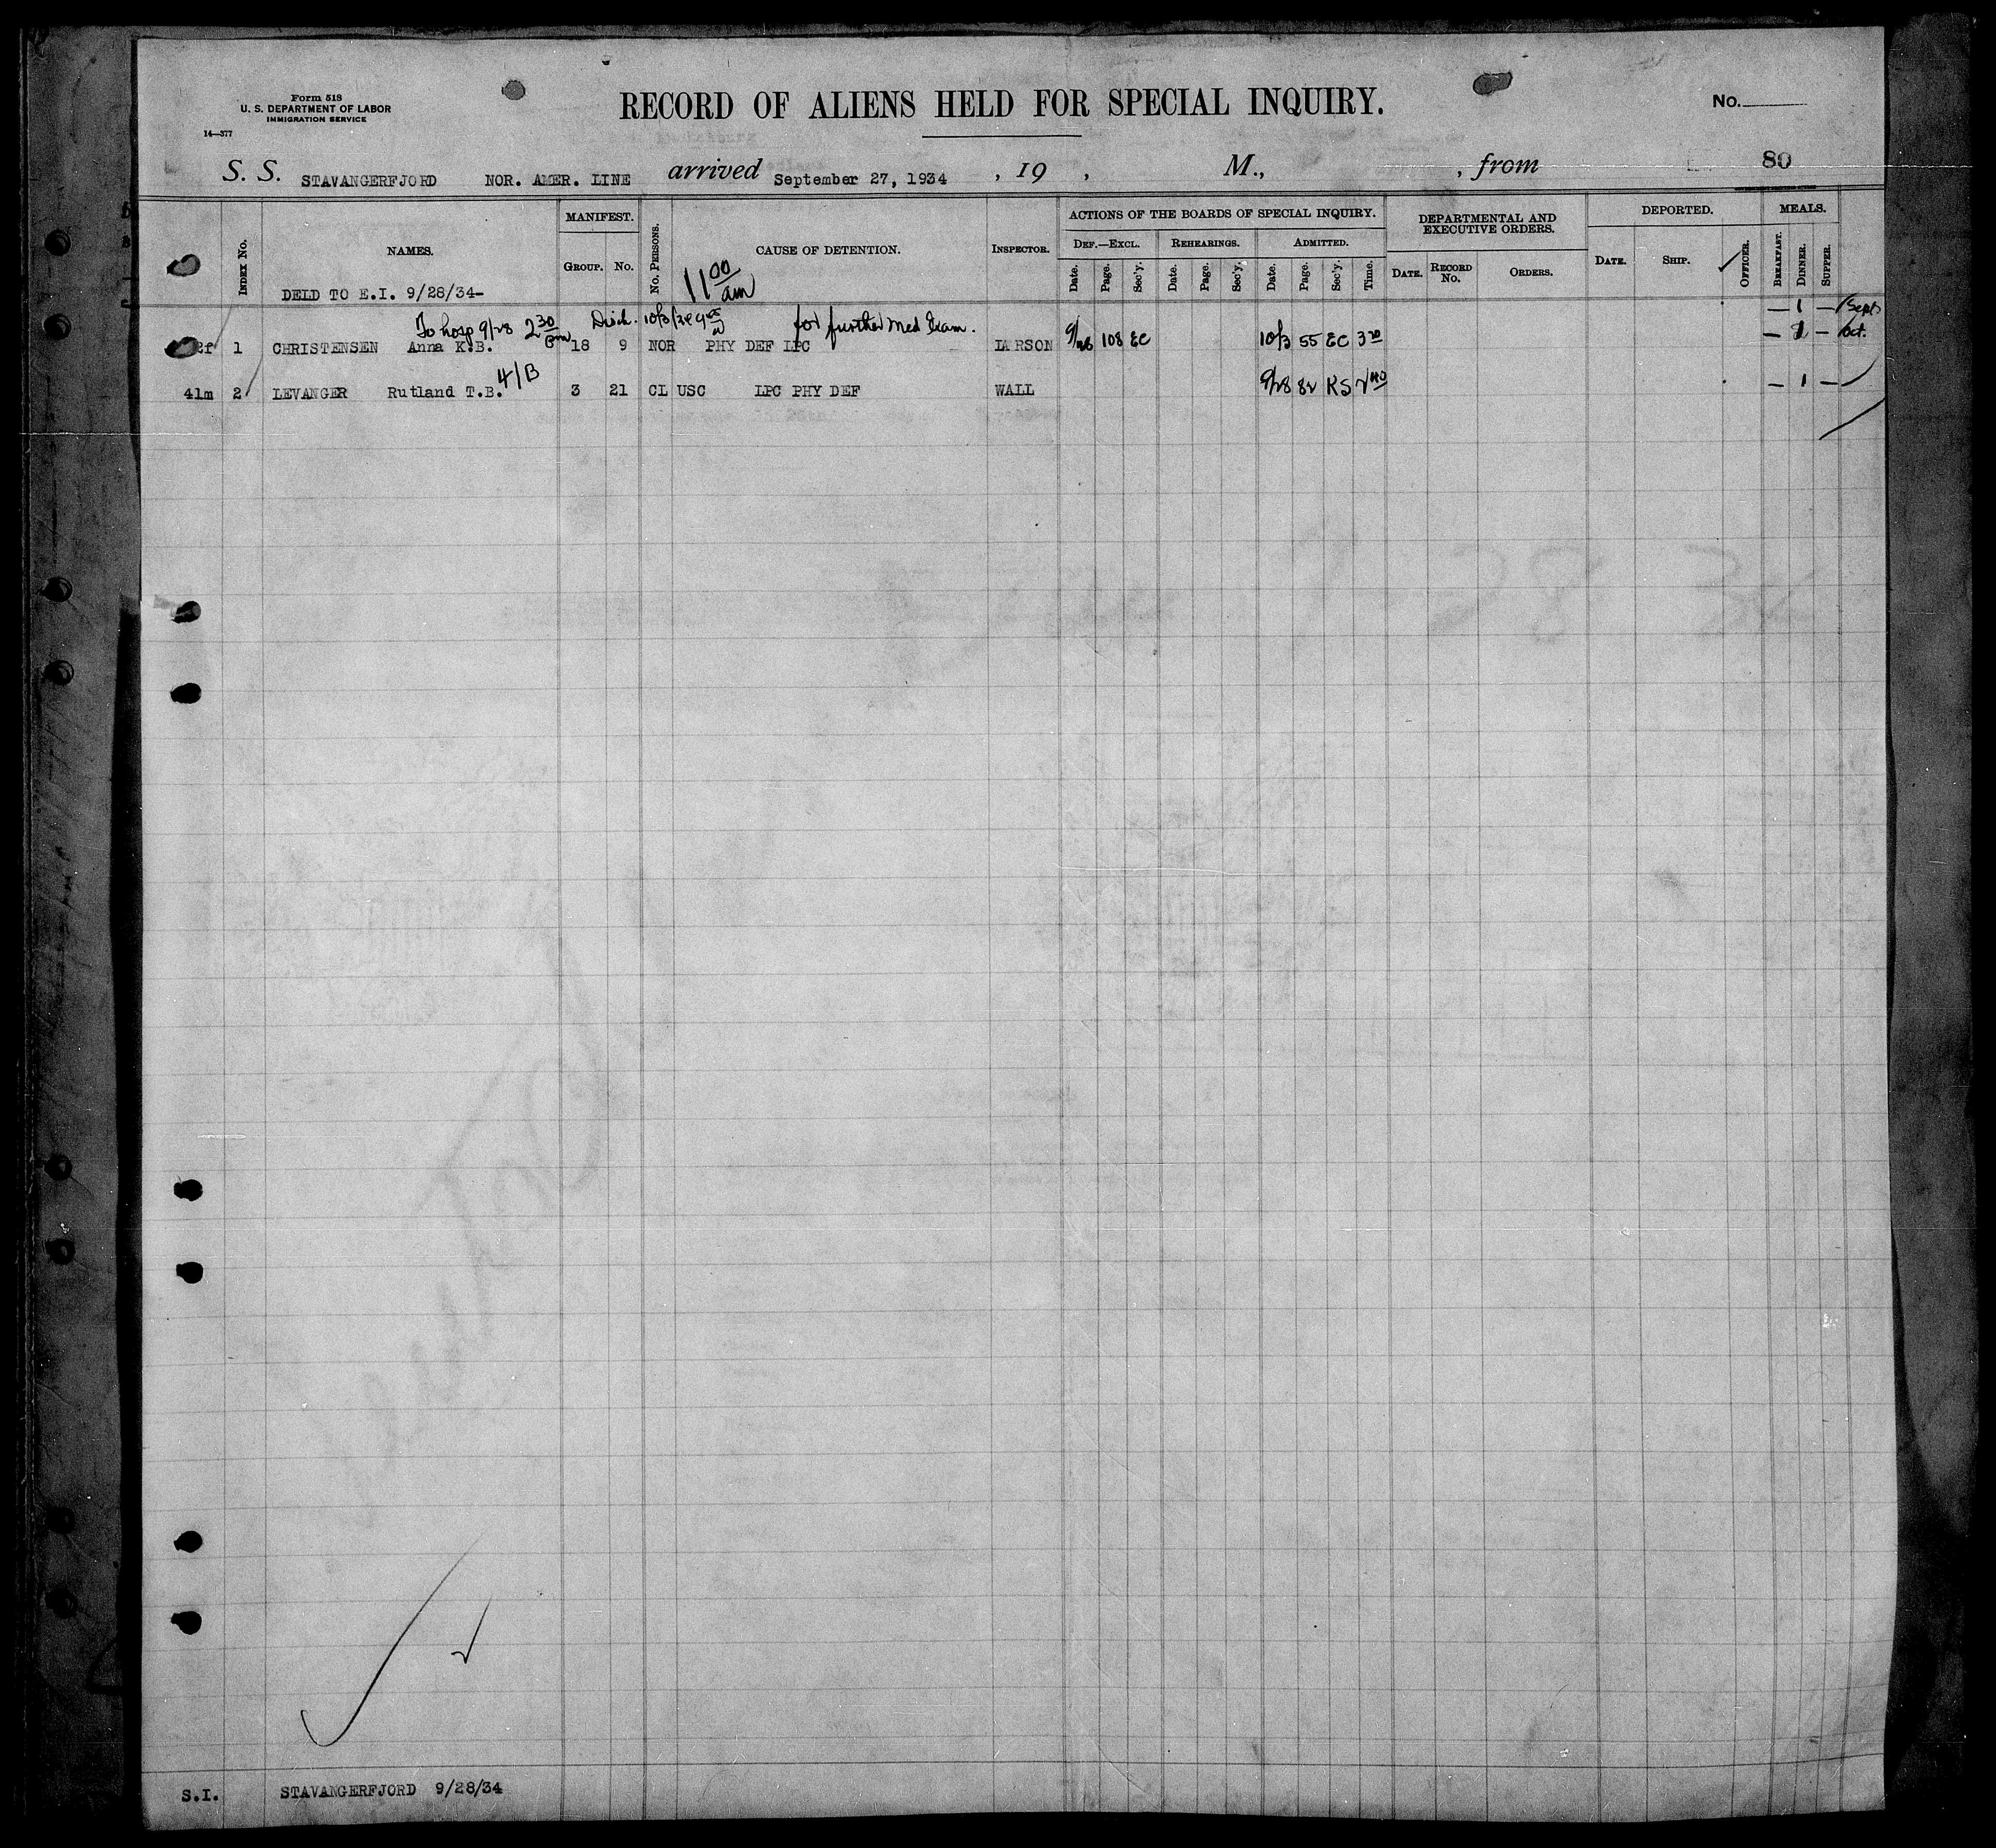 Form 518
U. S. DEPARTMENT OF LABOR
IMMIGRATION SERVICE
14—377
RECORD OF ALIENS HELD FOR SPECIAL INQUIRY.
No.
S. S. STAVANGERFJORD NOR. AMER. LINE arrived September 27, 1934 , 19 , M., , from 80
INDEX No.
NAMES.
MANIFEST.
GROUP. No.
No. PERSONS.
CAUSE OF DETENTION.
INSPECTOR.
ACTIONS OF THE BOARDS OF SPECIAL INQUIRY.
DEF.—EXCL. REHEARINGS. ADMITTED.
Date. Page. Sec'y. Date. Page. Sec'y. Date. Page. Sec'y. Time.
DEPARTMENTAL AND
EXECUTIVE ORDERS.
DATE. RECORD No. ORDERS.
DEPORTED.
DATE. SHIP. OFFICER.
MEALS.
BREAKFAST. DINNER. SUPPER.
DELD TO E.I. 9/28/34- 11 00 am
To hosp 9/28 2 30 pm Disch. 10/3/34 for further Med Exam. — 1 — Sept
1 CHRISTENSEN Anna K.B. 18 9 NOR PHY DEF LPC LARSON 108 EC 10/3 55 EC 3 20 — — Oct.
41m 2 LEVANGER Rutland T.B. 4/B 3 21 CL USC LPC PHY DEF WALL 9/28 82 RS — 1 —
S.I. STAVANGERFJORD 9/28/34